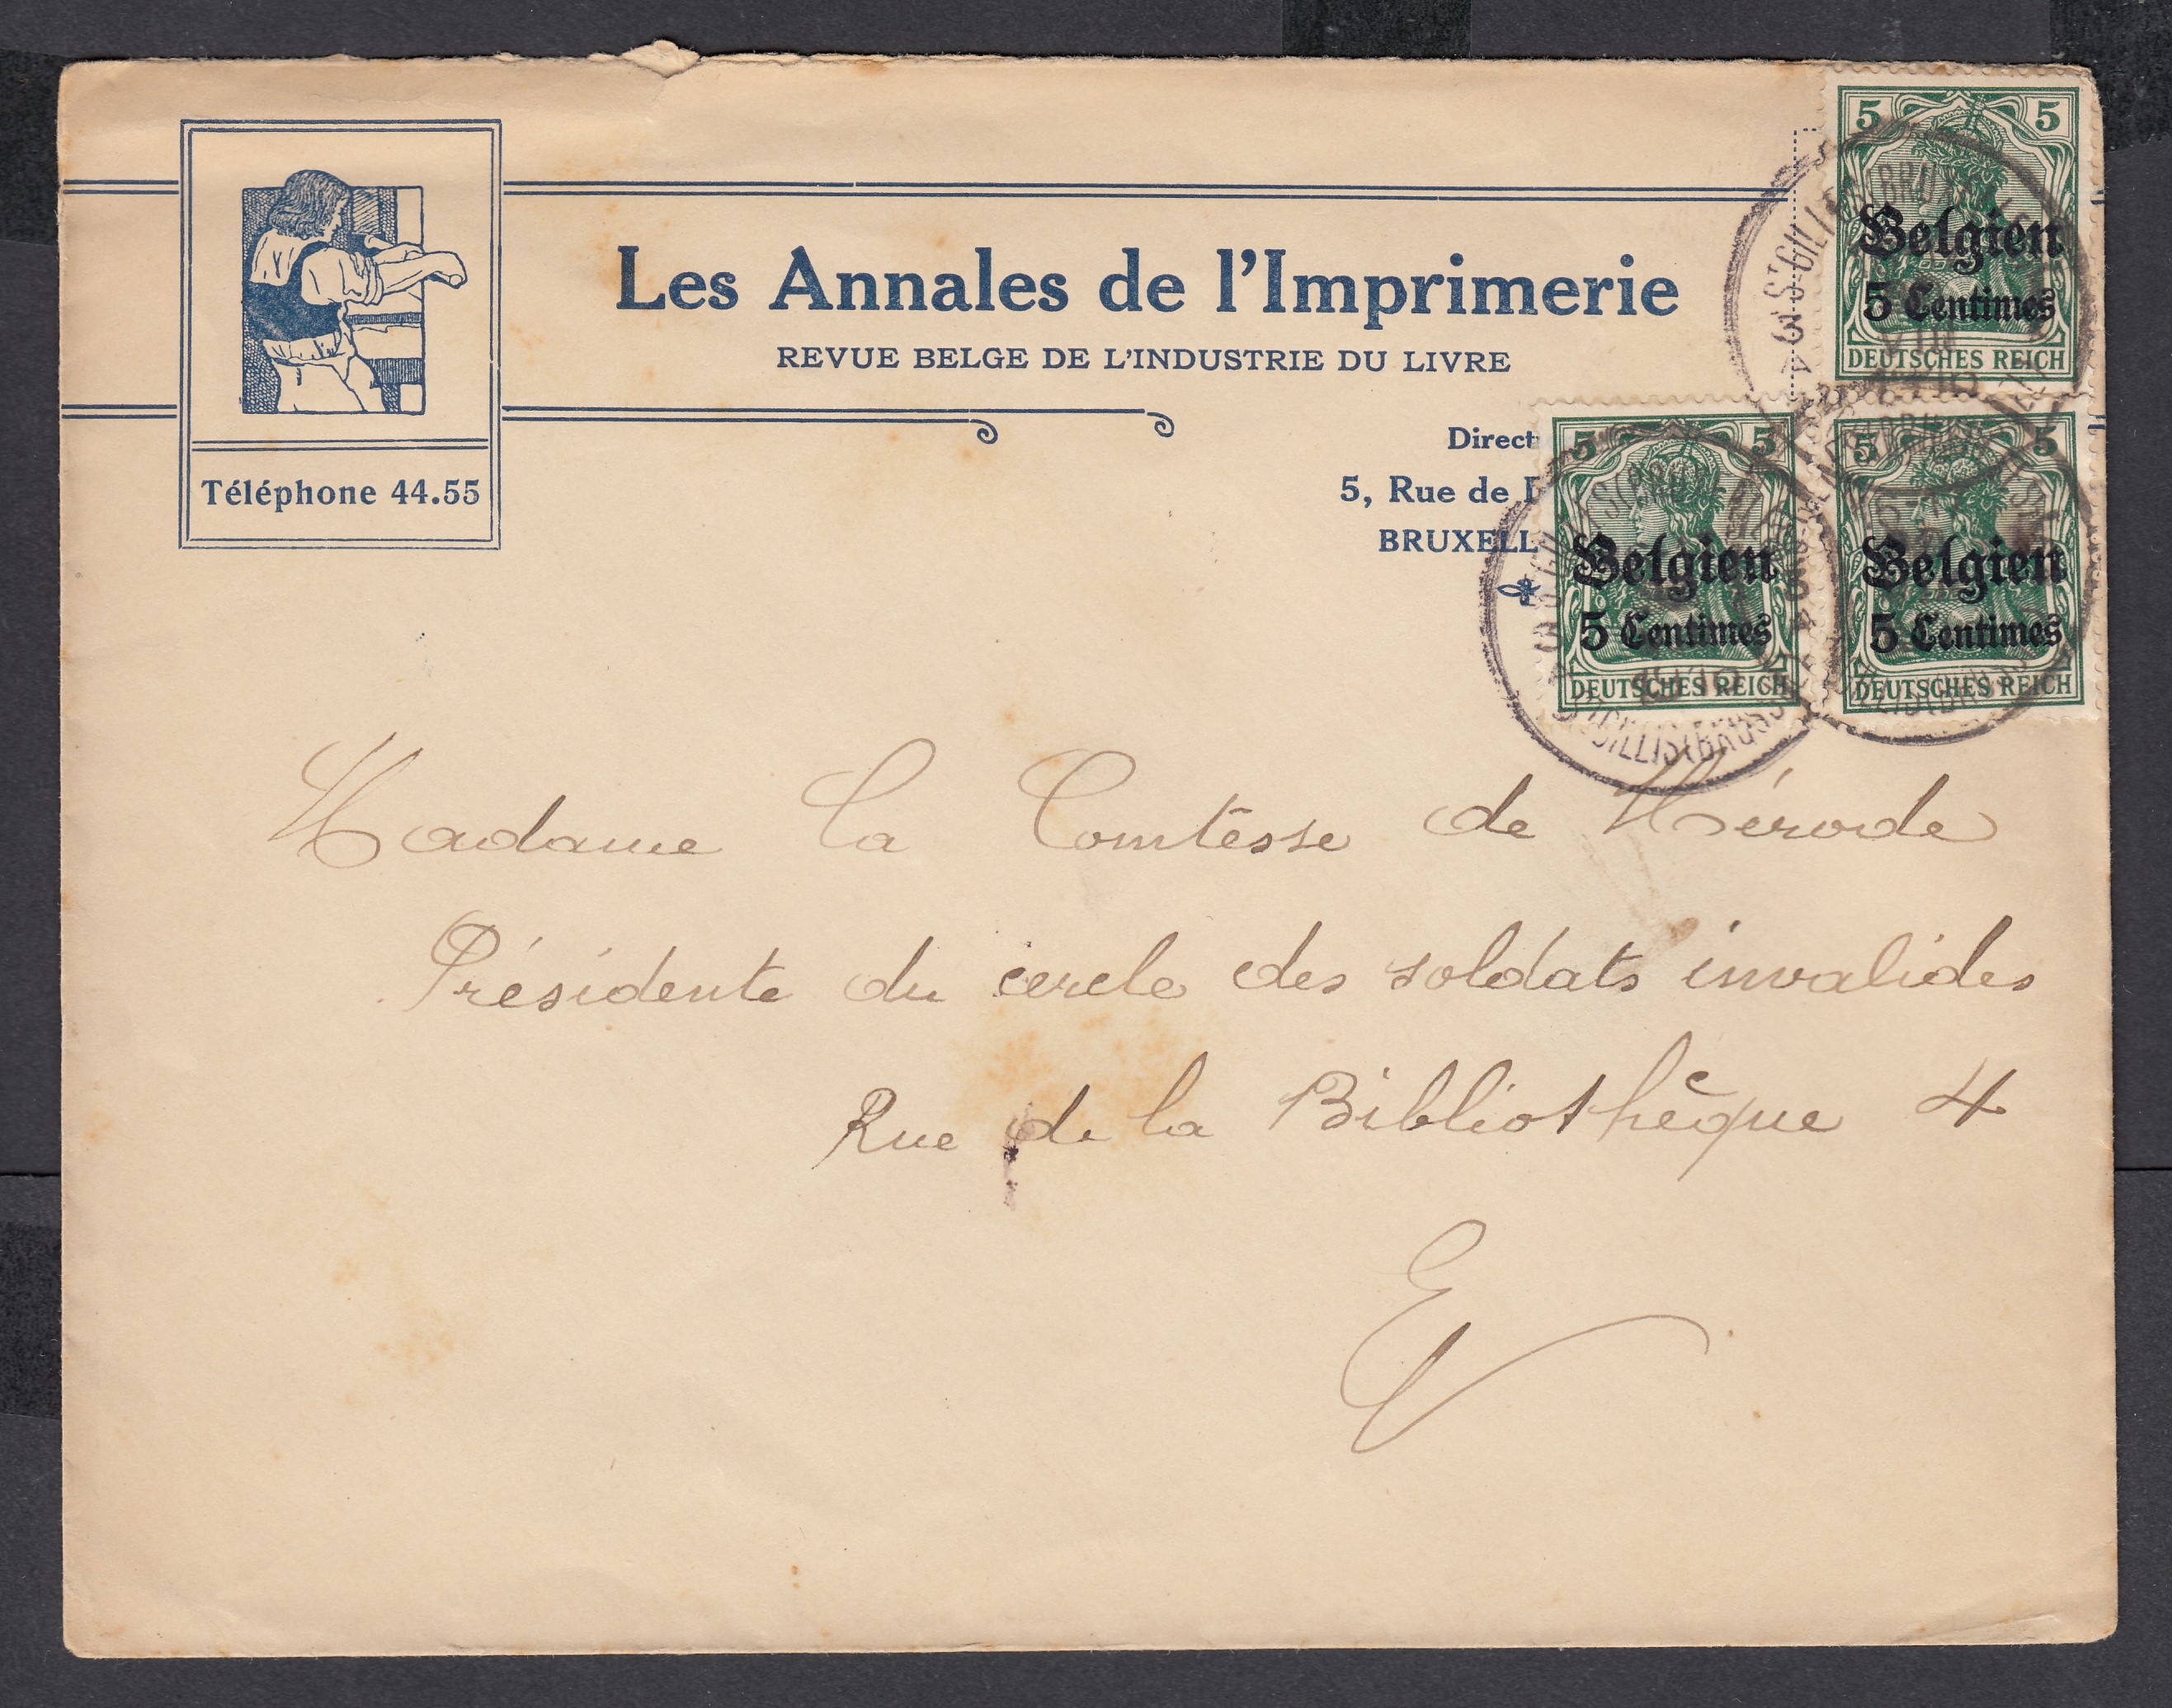 Les Annales de l'Imprimerie
REVUE BELGE DE L'INDUSTRIE DU LIVRE
Téléphone 44.55
Direct
5, Rue de
BRUXELL
5 5
Belgien
5 Centimes
DEUTSCHES REICH
5 5
Belgien
5 Centimes
DEUTSCHES REICH
5 5
Belgien
5 Centimes
DEUTSCHES REICH
Madame la Comtesse de Mérode
Présidente du cercle des soldats invalides
Rue de la Bibliothèque 4
EV